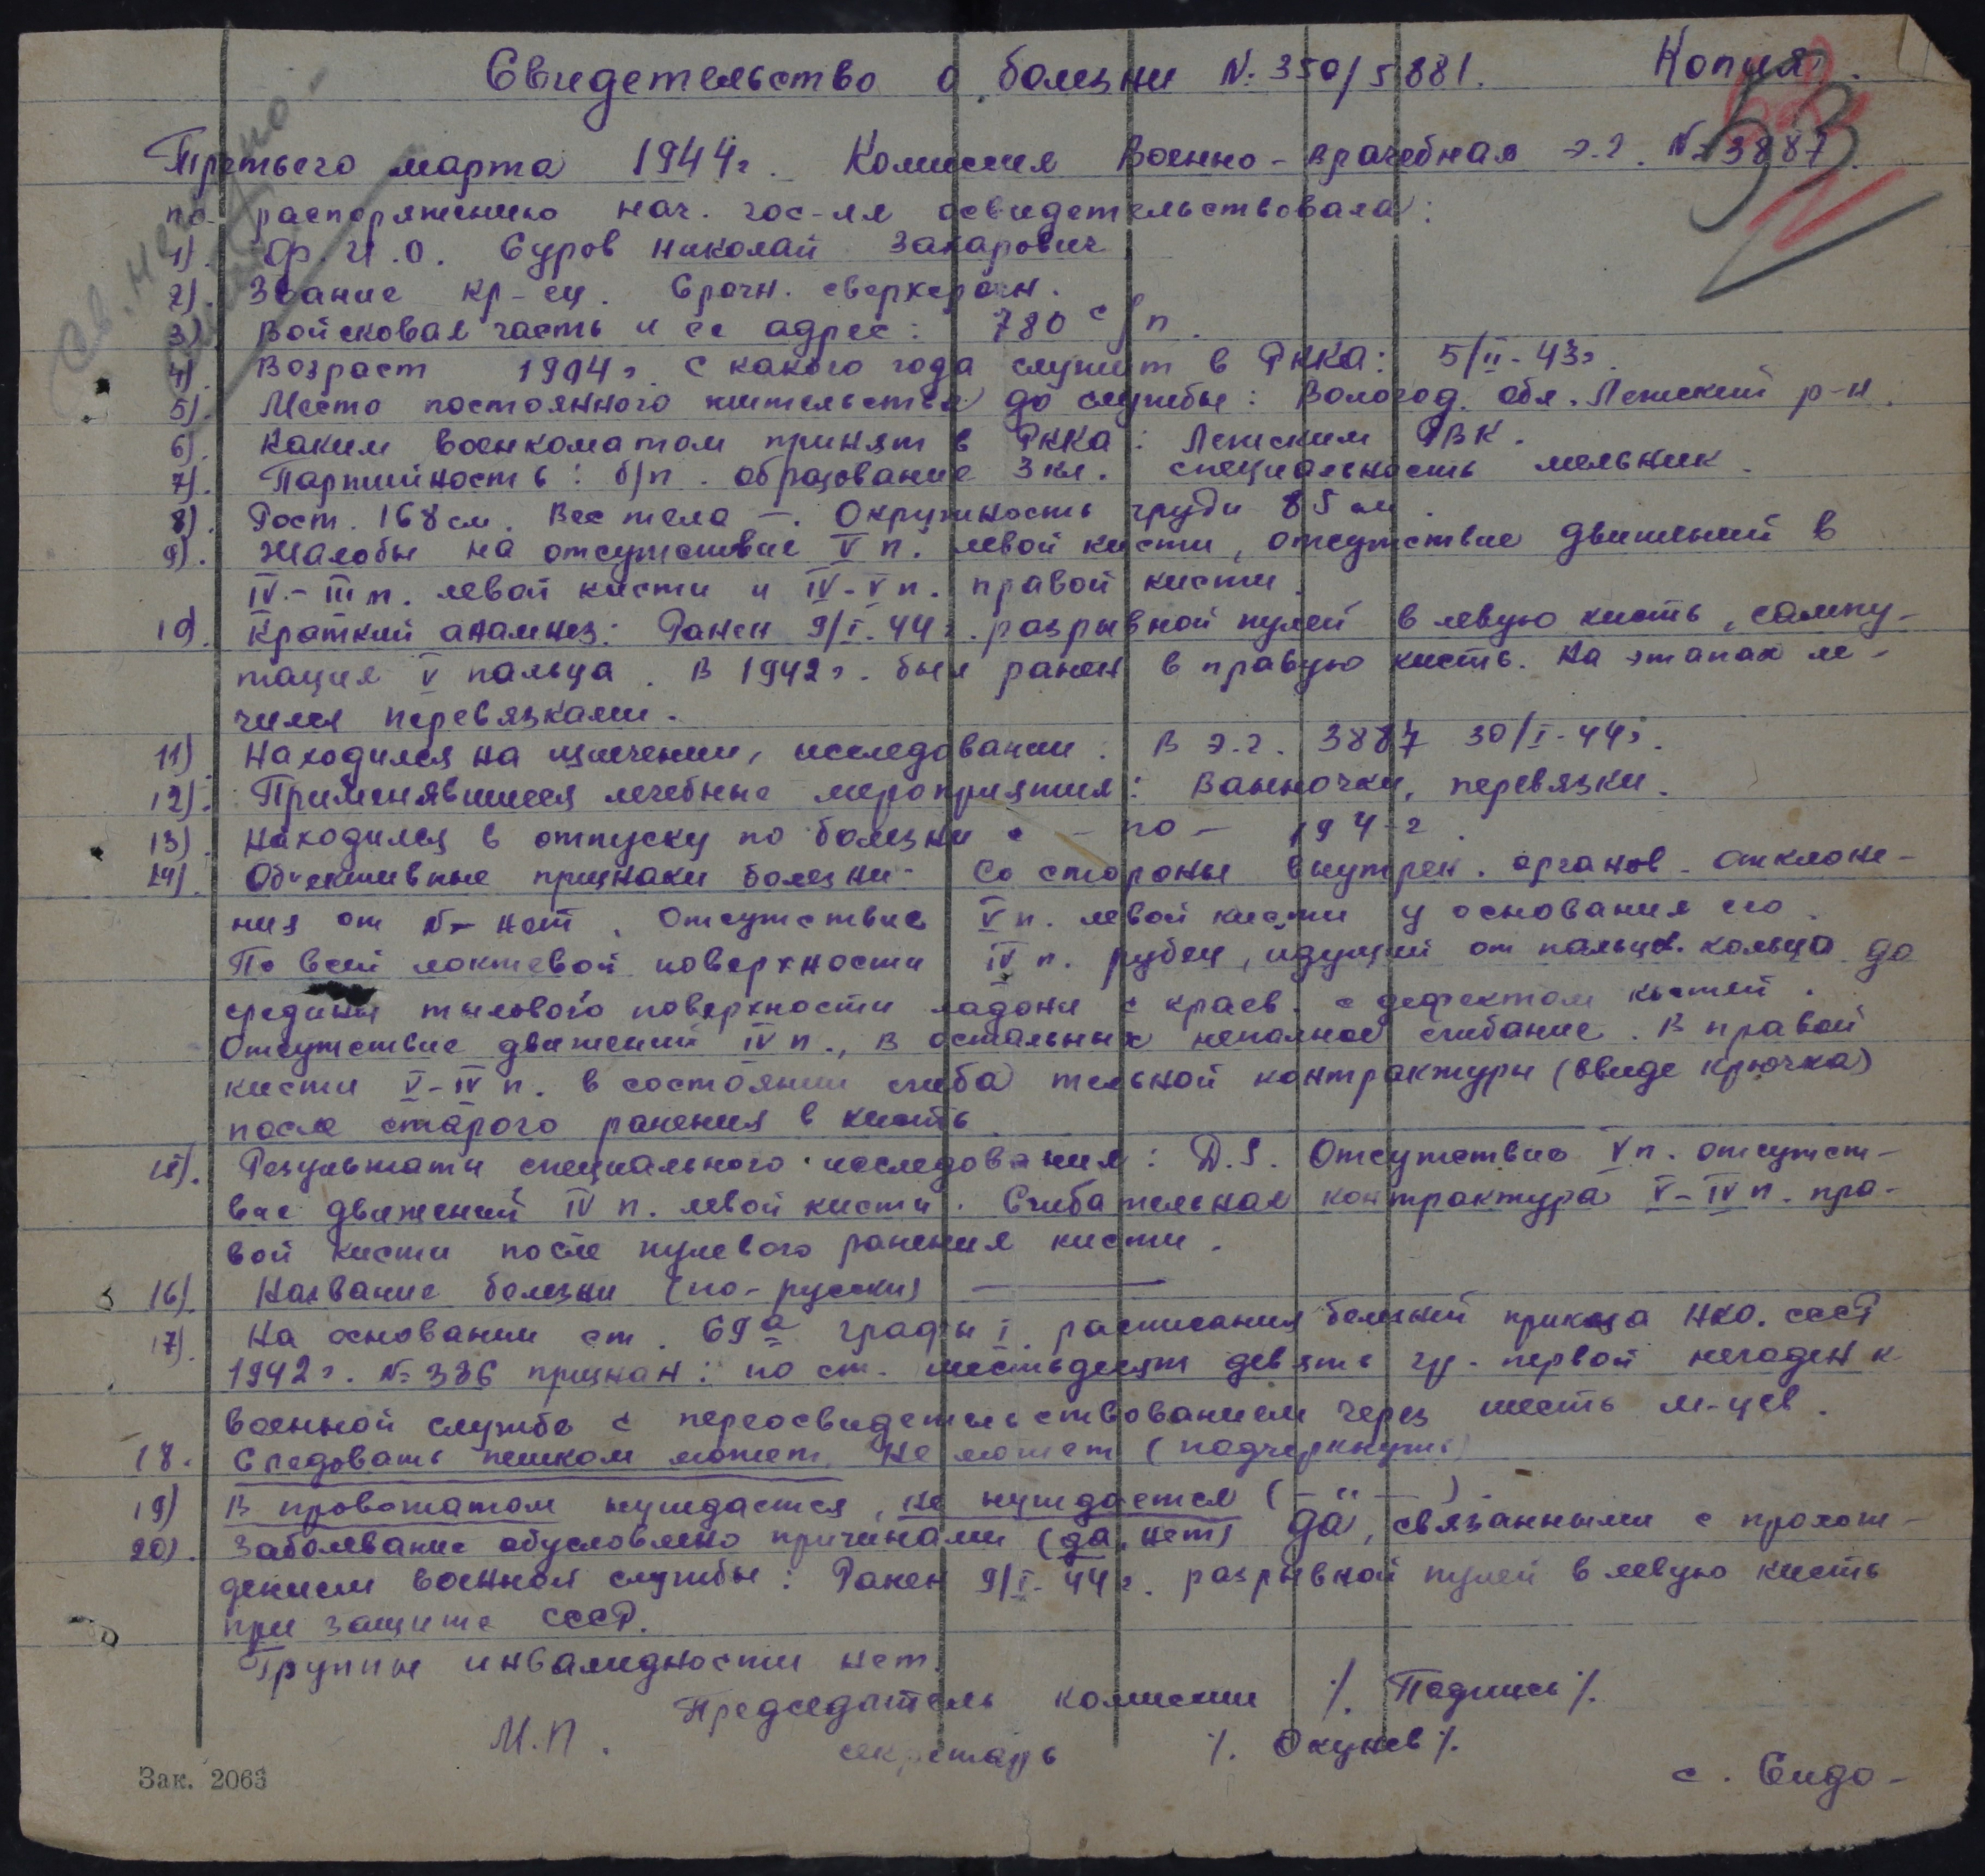 Свидетельство о болезни N. 350/5881. Копия.
53
Третьего марта 1944г. Комиссия Военно-врачебная э.г. № 3887.
по распоряжению нач. гос-ля освидетельствовала:
1). Ф.И.О. Суров Николай Захарович
2). Звание кр-ец. Срочн. сверхсрочн.
3). Войсковая часть и ее адрес: 780 с/п.
4). Возраст 1904г. С какого года служит в РККА: 5/II-43г.
5). Место постоянного жительства до службы: Вологод. обл. Лежский р-н.
6). Каким военкоматом принят в РККА: Лежским РВК.
7). Партийность: б/п. образование 3 кл. специальность мельник.
8). Рост. 168 см. Вес тела —. Окружность груди 85 см.
9). Жалобы на отсутствие V п. левой кисти, отсутствие движений в
IV-III п. левой кисти и IV-V п. правой кисти.
10). Краткий анамнез: Ранен 9/I.44г. разрывной пулей в левую кисть, сампу-
тация V пальца. В 1942г. был ранен в правую кисть. На этапах ле-
чился перевязками.
11). Находился на излечении, исследовании. В э.г. 3887 30/I-44г.
12). Применявшиеся лечебные мероприятия: Ванночки, перевязки.
13). Находился в отпуску по болезни с - по - 194-г.
14). Объективные признаки болезни: Со стороны внутрен. органов отклоне-
ния от N- нет. Отсутствие V п. левой кисти у основания его.
По всей локтевой поверхности IV п. рубец, идущий от кольца до
средины тылового поверхности ладони с краев. с дефектом костей.
Отсутствие движений IV п., в остальных неполное сгибание. В правой
кисти V-IV п. в состоянии сгибательной контрактуры (ввиде крючка)
после старого ранения в кисть.
15). Результаты специального исследования: D.S. Отсутствие V п. отсутст-
вие движений IV п. левой кисти. Сгибательная контрактура V-IV п. пра-
вой кисти после пулевого ранения кисти.
16). Название болезни (по-русски) ———
17). На основании ст. 69а графы I расписания болезней приказа НКО. СССР
1942г. № 336 признан: по ст. шестьдесят девять гр. первой негоден к
военной службе с переосвидетельствованием через шесть м-цев.
18. Следовать пешком может, не может (подчеркнуть)
19) В провожатом нуждается, не нуждается (— " —)
20). Заболевание обусловлено причинами (да, нет) да, связанными с прохож-
дением военной службы: Ранен 9/I-44г. разрывной пулей в левую кисть
при защите СССР.
Группы инвалидности нет.
Председатель комиссии /. Подпись /.
М.П. секретарь /. Окунев /.
Зак. 2063